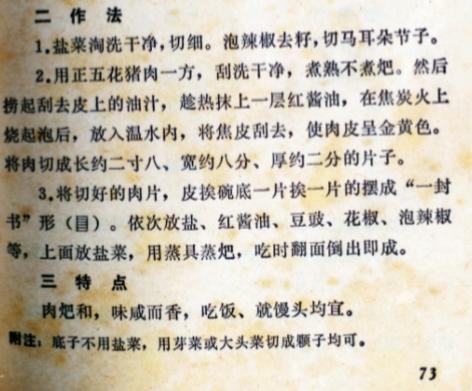 二 作 法
1.盐菜淘洗干净,切细。泡辣椒去籽,切马耳朵节子。
2.用正五花猪肉一方，刮洗干净，煮熟不煮𤆵。然后
捞起刮去皮上的油汁，趁热抹上一层红酱油，在焦炭火上
烧起泡后，放入温水内，将焦皮刮去，使肉皮呈金黄色。
将肉切成长约二寸八、宽约八分、厚约二分的片子。
3.将切好的肉片，皮挨碗底一片挨一片的摆成“一封
书”形（目）。依次放盐、红酱油、豆豉、花椒、泡辣椒
等，上面放盐菜，用蒸具蒸𤆵，吃时翻面倒出即成。
三 特 点
肉𤆵和，味咸而香，吃饭、就馒头均宜。
附注：底子不用盐菜，用芽菜或大头菜切成颗子均可。
73